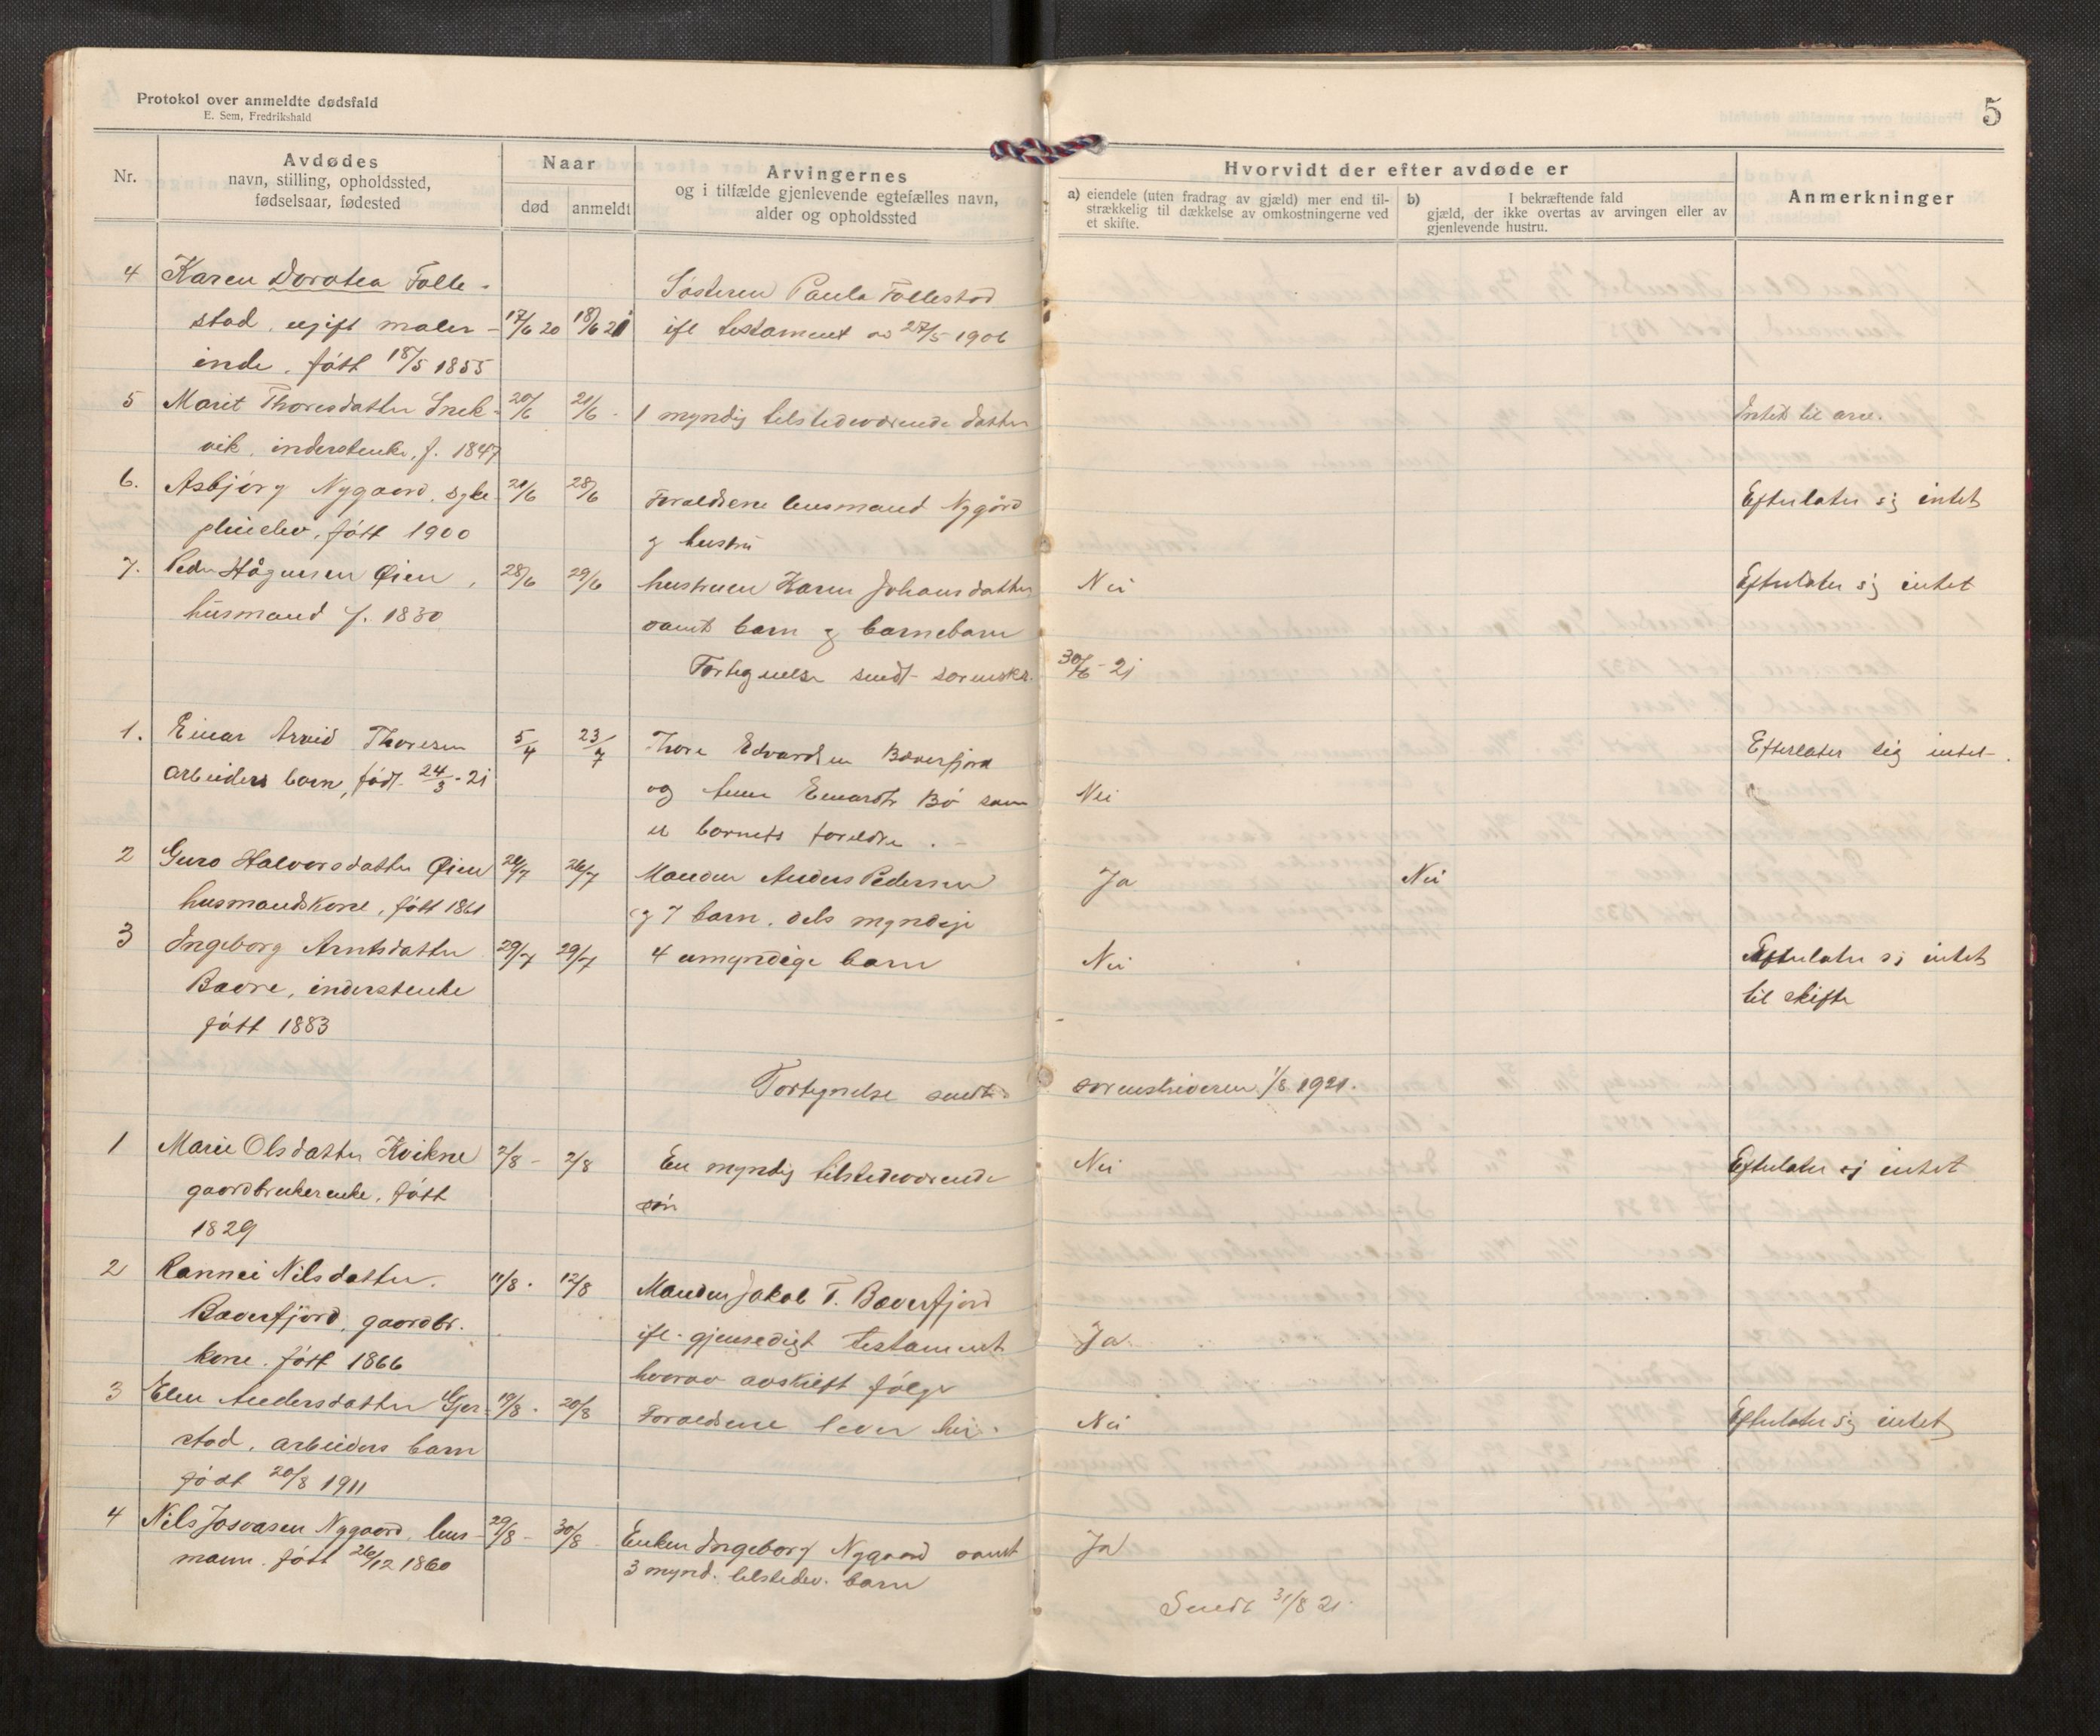 Protokol over anmeldte dødsfald
E. Sem, Fredrikshald
5
Nr.
Avdødes
navn, stilling, opholdssted,
fødselsaar, fødested
Naar
død
anmeldt
Arvingernes
og i tilfælde gjenlevende egtefælles navn,
alder og opholdssted
Hvorvidt der efter avdøde er
a) eiendele (uten fradrag av gjæld) mer end til-
strækkelig til dækkelse av omkostningerne ved
et skifte.
b) I bekræftende fald
gjæld, der ikke overtas av arvingen eller av
gjenlevende hustru.
Anmerkninger
4 Karen Dorotea Folle-
Søsteren Paula Follestad
stad, ugift maler- 17/6 20 18/6 21 ifl testament av 27/5 1906
inde, født 18/5 1855
5 Marit Thoresdatter Snek- 20/6 21/6 - 1 myndig tilstedeværende datter Intet til arv.
vik, inderstenke, f. 1847
6. Asbjørg Nygaard, syke- 21/6 28/6 Forældrene lensmand Nygård Efterlater sig intet
pleielev, født 1900 og hustru
7. Peder Hågensen Øien, 28/6 29/6 hustruen Karen Johansdatter Nei Efterlater sig intet
husmand f. 1830 samt barn og barnebarn
Fortegnelse sendt sorenskr. 30/6 - 21
1. Einar Arvid Thoresen 5/4 23/7 Thore Edvardsen Bæverfjord Efterlater sig intet.
arbeiders barn, født 24/3 - 21 og Anne Einarsdtr Bø som Nei
er barnets foreldre.
2 Guro Halvorsdatter Øien 26/7 Manden Anders Pedersen Ja Nei
husmandskone, født 1861 og 7 barn, dels myndige
3 Ingeborg Arntsdatter 29/7 29/7 4 umyndige barn Nei Efterlater sig intet
Bævre, inderstenke til skifte
født 1883
Fortegnelse sendt sorenskriveren 1/8 1921.
1 Marie Olsdatter Kvikne 2/8 - 2/8 En myndig tilstedeværende Nei Efterlater sig intet
gaardbrukerenke, født søn
1829
2 Rannei Nilsdatter 11/8 - 12/8 Manden Jakob T. Bæverfjord
Bæverfjord, gaardbr. ifl. gjensedigt testament Ja
kone. født 1866 hvorav avskrift følger
3 Elen Andersdatter Gjer- 19/8 - 20/8 Forældrene lever her. Nei Efterlater sig intet
stad, arbeiders barn
født 20/8 1911
4 Nils Josvasen Nygaard, lens- 29/8 - 30/8 Enken Ingeborg Nygaard samt Ja
mann. født 26/12 1860 3 mynd. tilstedev. barn
Sendt 31/8 21.